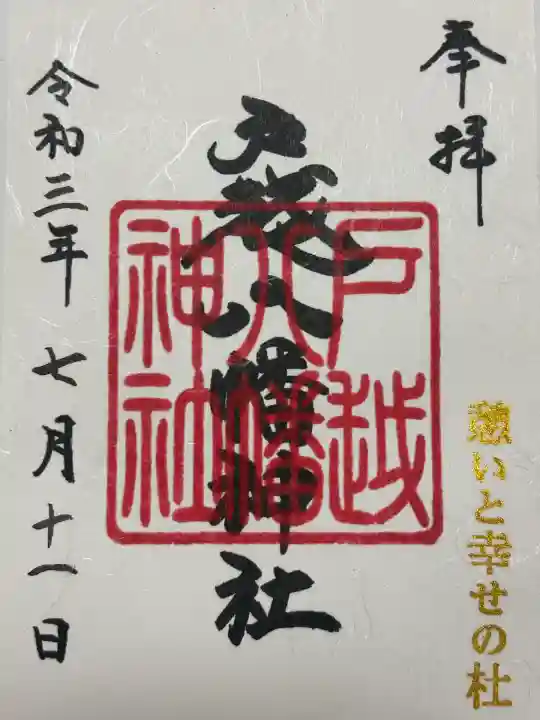 奉拝
戸越八幡神社
戸越
八幡
神社
令和三年 七月十一日
憩いと幸せの杜